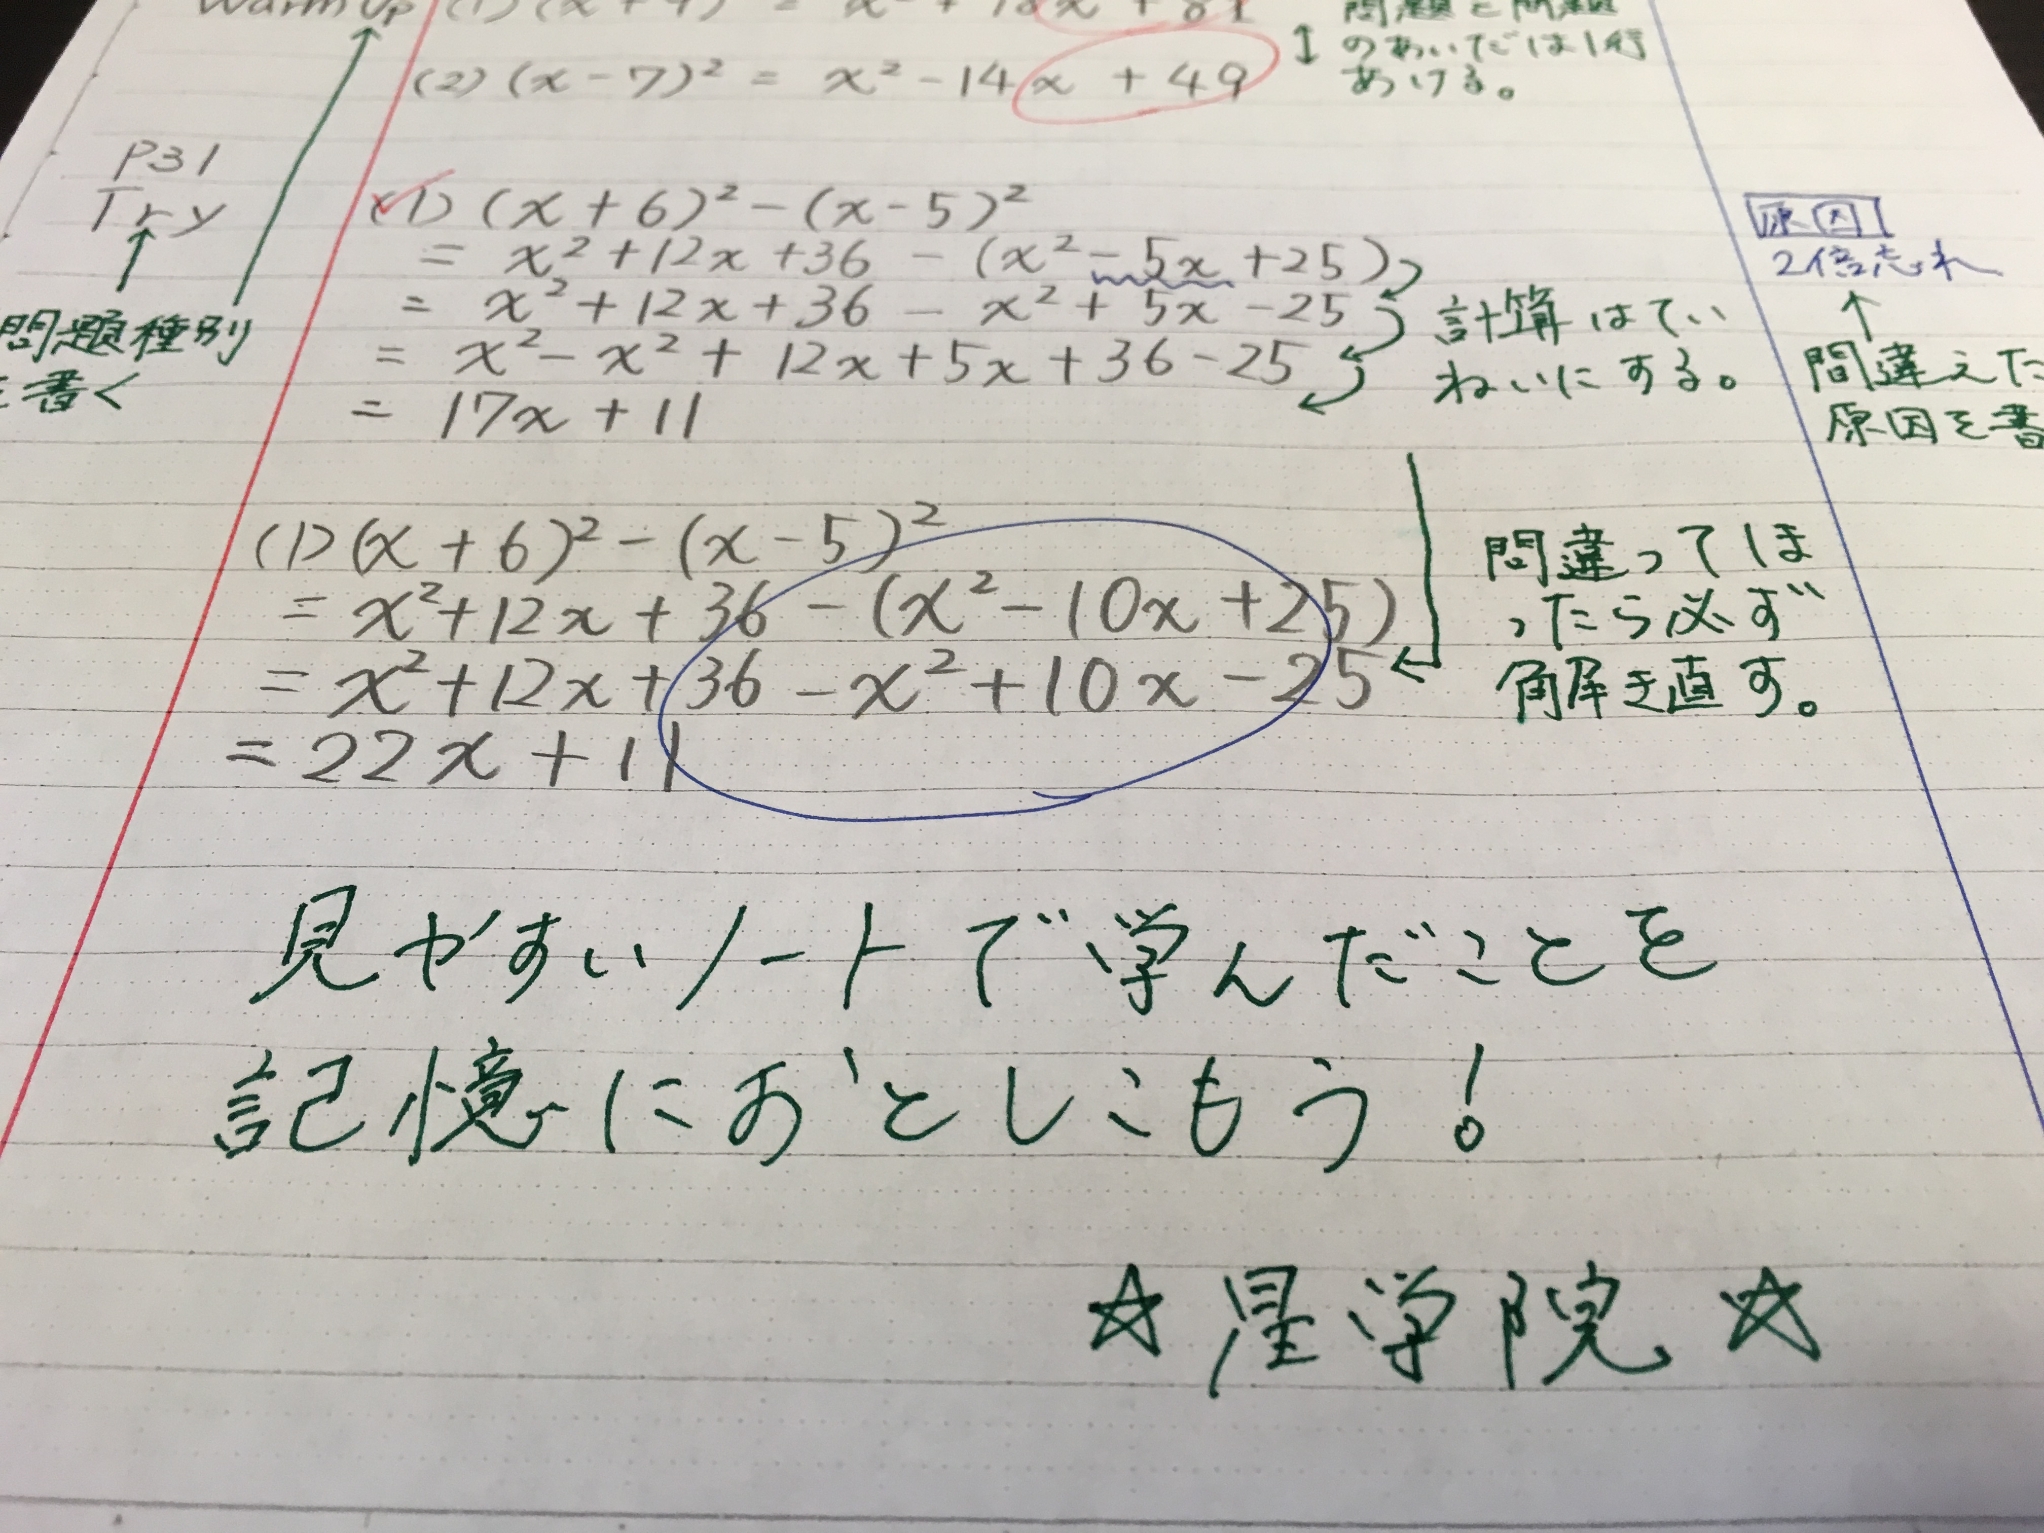 Warm Up
(2) (x-7)² = x²-14x+49
問題と問題
のあいだは1行
あける。
P31
Try
問題種別
を書く
(1) (x+6)²-(x-5)²
= x²+12x+36-(x²-5x+25)
= x²+12x+36-x²+5x-25
= x²-x²+12x+5x+36-25
= 17x+11
計算はてい
ねいにする。
原因
2倍忘れ
間違えた
原因を書
(1) (x+6)²-(x-5)²
= x²+12x+36-(x²-10x+25)
= x²+12x+36-x²+10x-25
= 22x+11
間違ってしま
ったら必ず
解き直す。
見やすいノートで学んだことを
記憶におとしこもう!
☆星学院☆